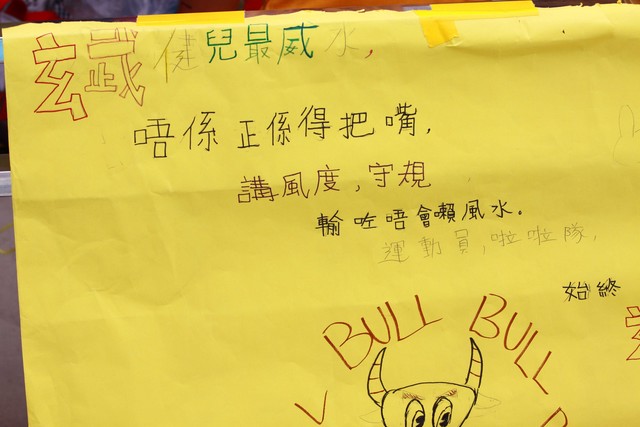 玄武健兒最威水，
唔係正係得把嘴，
講風度，守規
輸咗唔會賴風水。
運動員，啦啦隊，
始終
BULL BULL